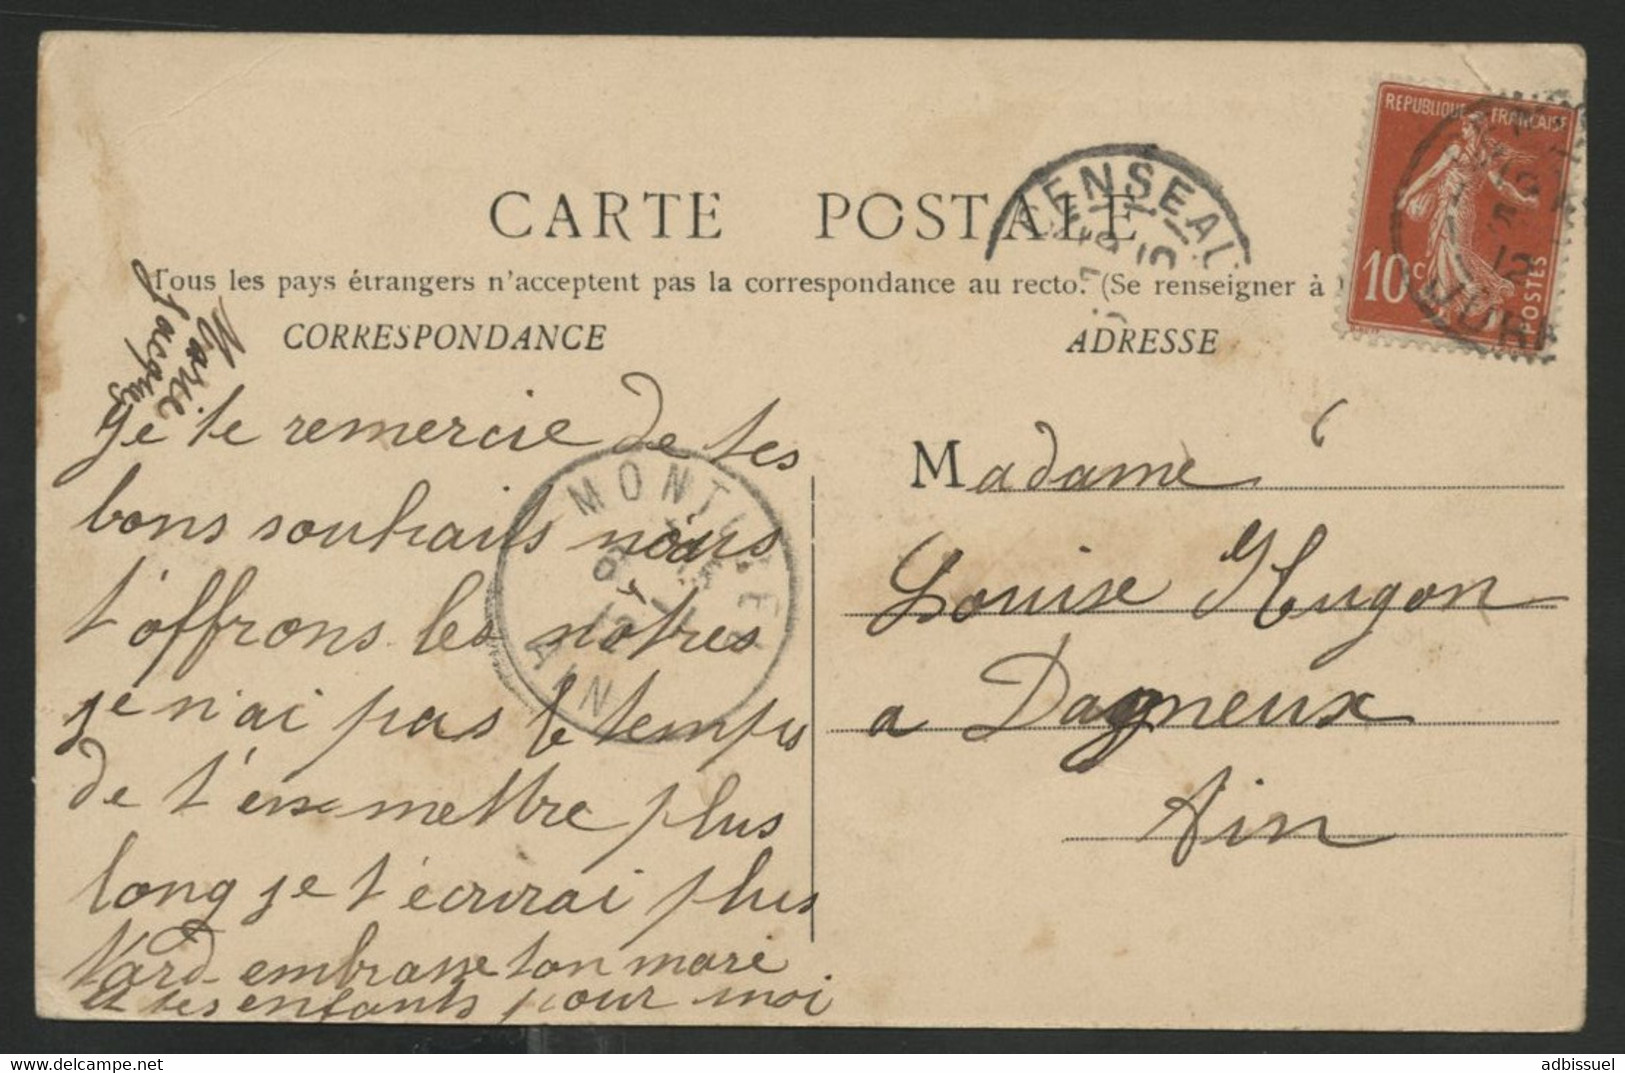 CARTE POSTALE
Tous les pays étrangers n'acceptent pas la correspondance au recto. (Se renseigner à
CORRESPONDANCE
ADRESSE
REPUBLIQUE FRANÇAISE
10c
POSTES
Marie
Jacques
Je te remercie de tes
bons souhaits nous
t'offrons les notres
je n'ai pas le temps
de t'en mettre plus
long je t'écrirai plus
tard embrasse ton mari
et tes enfants pour moi
MONTLUEL
AIN
Madame
Louise Hugon
a Dagneux
Ain
adbissuel